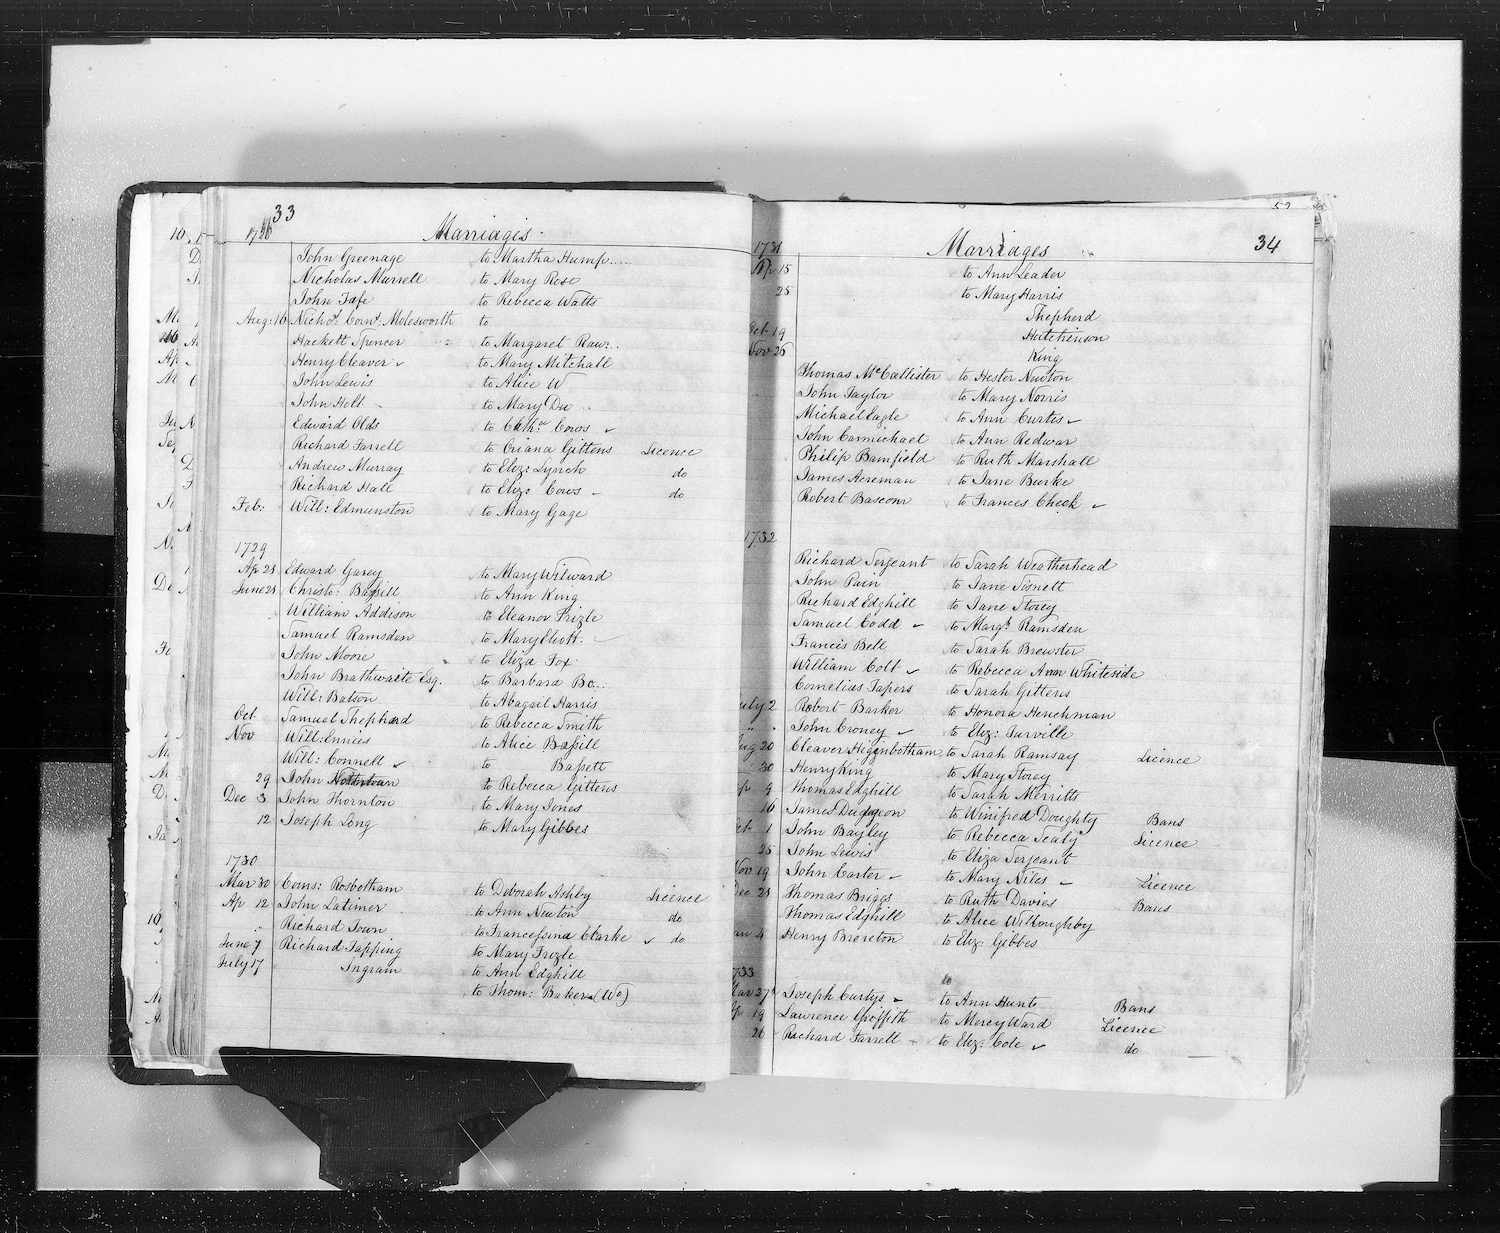 33
Marriages
John Greenage to Martha Hump....
Nicholas Murrell to Mary Rose
John Tafe to Rebecca Watts
Aug: 16 Nicho.s Corn.s Molesworth to
Hackett Spencer to Margaret Raw:..
Henry Cleaver to Mary Mitchall
John Lewis to Alice W
John Holt to Mary Du ..
Edward Olds to Cows
Richard Farrell to Oriana Gittens Licence
Andrew Murray to Eliz: Lynch do
Richard Hall to Eliz: Cows do
Feb: Will: Edmunston to Mary Gage
1729
Ap 23 Edward Garey to Mary Wilward
June 23 Christo: to Ann King
William Addison to Eleanor Frizle
Samuel Ramsden to Mary Eliott
John Moore to Eliza Fox
John Brathwaite Esq. to Barbara Bo...
Will: Batson to Abagail Harris
Oct Samuel Shepherd to Rebecca Smith
Nov Will: Ennies to Alice
Will: Connell to Bassett
29 John to Rebecca Gittens
Dec 3 John Thornton to Mary Jones
12 Joseph Long to Mary Gibbes
1730
Mar 30 Corns: Rosbotham to Deborah Ashby Licence
Ap 12 John Latimer to Ann Newton do
Richard Town to Francessina Clarke do
June 7 Richard Tapping to Mary Frizle
July 17 Ingram to Ann Edghill
to Thom: Baker (Wo)
34
Marriages
1731
Ap 15 to Ann Leader
25 to Mary Harris
Shepherd
Oct 19 Hutchinson
Nov 26 King
Thomas McCallister to Hester Newton
John Taylor to Mary Norris
Michael Eagle to Ann Curtis
John Carmichael to Ann Redwar
Philip Bamfield to Ruth Marshall
James Acreman to Jane Burke
Robert Bascom to Frances Cheek
1732
Richard Serjeant to Sarah Weatherhead
John Pain to Jane Tisnett
Richard Edghill to Jane Storey
Samuel Codd to Margt Ramsden
Francis Bell to Sarah Brewster
William Colt to Rebecca Ann Whiteside
Cornelius Japers to Sarah Gittens
July 2 Robert Barker to Honora Henchman
John Croney to Eliz: Turville
Aug 20 Cleaver Higginbotham to Sarah Ramsay Licence
30 Henry King to Mary Storey
9 Thomas Edghill to Sarah Merritts
16 James Dudgeon to Winifred Doughty Bans
Oct 1 John Bayley to Rebecca Sealy Licence
25 John Lewis to Eliza Serjeant
Nov 19 John Carter to Mary Niles Licence
Dec 23 Thomas Briggs to Ruth Davies Bans
Thomas Edghill to Alice Willoughby
Jan 4 Henry Brereton to Eliz: Gibbes
1733 to
Mar 27 Joseph Curtys to Ann Hunt Bans
Ap 19 Lawrence Griffith to Mercy Ward Licence
26 Richard Farrell to Eliz: Cole do